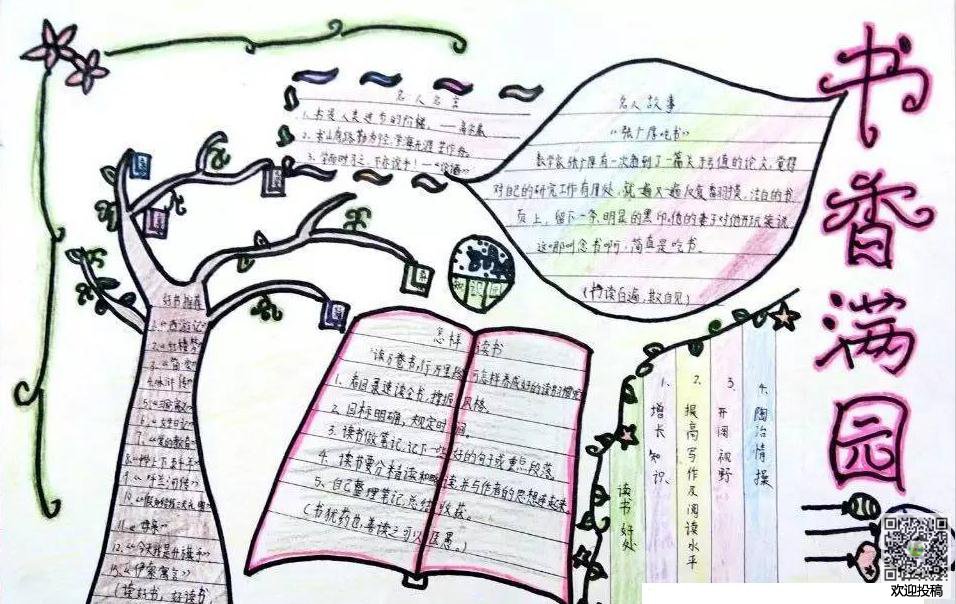 书香满园
名人名言
1.书是人类进步的阶梯。——高尔基
2.书山有路勤为径,学海无涯苦作舟。
3.学而时习之,不亦说乎!——《论语》
名人故事
“张广厚吃书”
数学家张广厚有一次看到了一篇关于亏值的论文,觉得
对自己的研究工作有用处,就一遍又一遍反复翻摸。洁白的书
页上,留下一条明显的黑印,他的妻子对他开玩笑说,
这哪叫念书啊,简直是吃书。
(书读百遍,其义自见)
好书推荐
1.《西游记》
2.《红楼梦》
4.水浒传
8.《呼兰河传》
12.《今天我是升旗手》
13.《伊索寓言》
(读好书,好读书
怎样读书
读万卷书,行万里路 怎样养成好的读书习惯呢
1、看目录速读全书,掌握风格。
2、目标明确,规定时间。
3.读书做笔记,记下一些好的句子或重点段落。
4、读书要分精读和略读,并与作者的思想连起来。
5、自己整理笔记,总结收获。
(书犹药也,善读之可以医愚。)
读书好处
1、增长知识
2、提高写作及阅读水平
3、开阔视野
4、陶冶情操
欢迎投稿